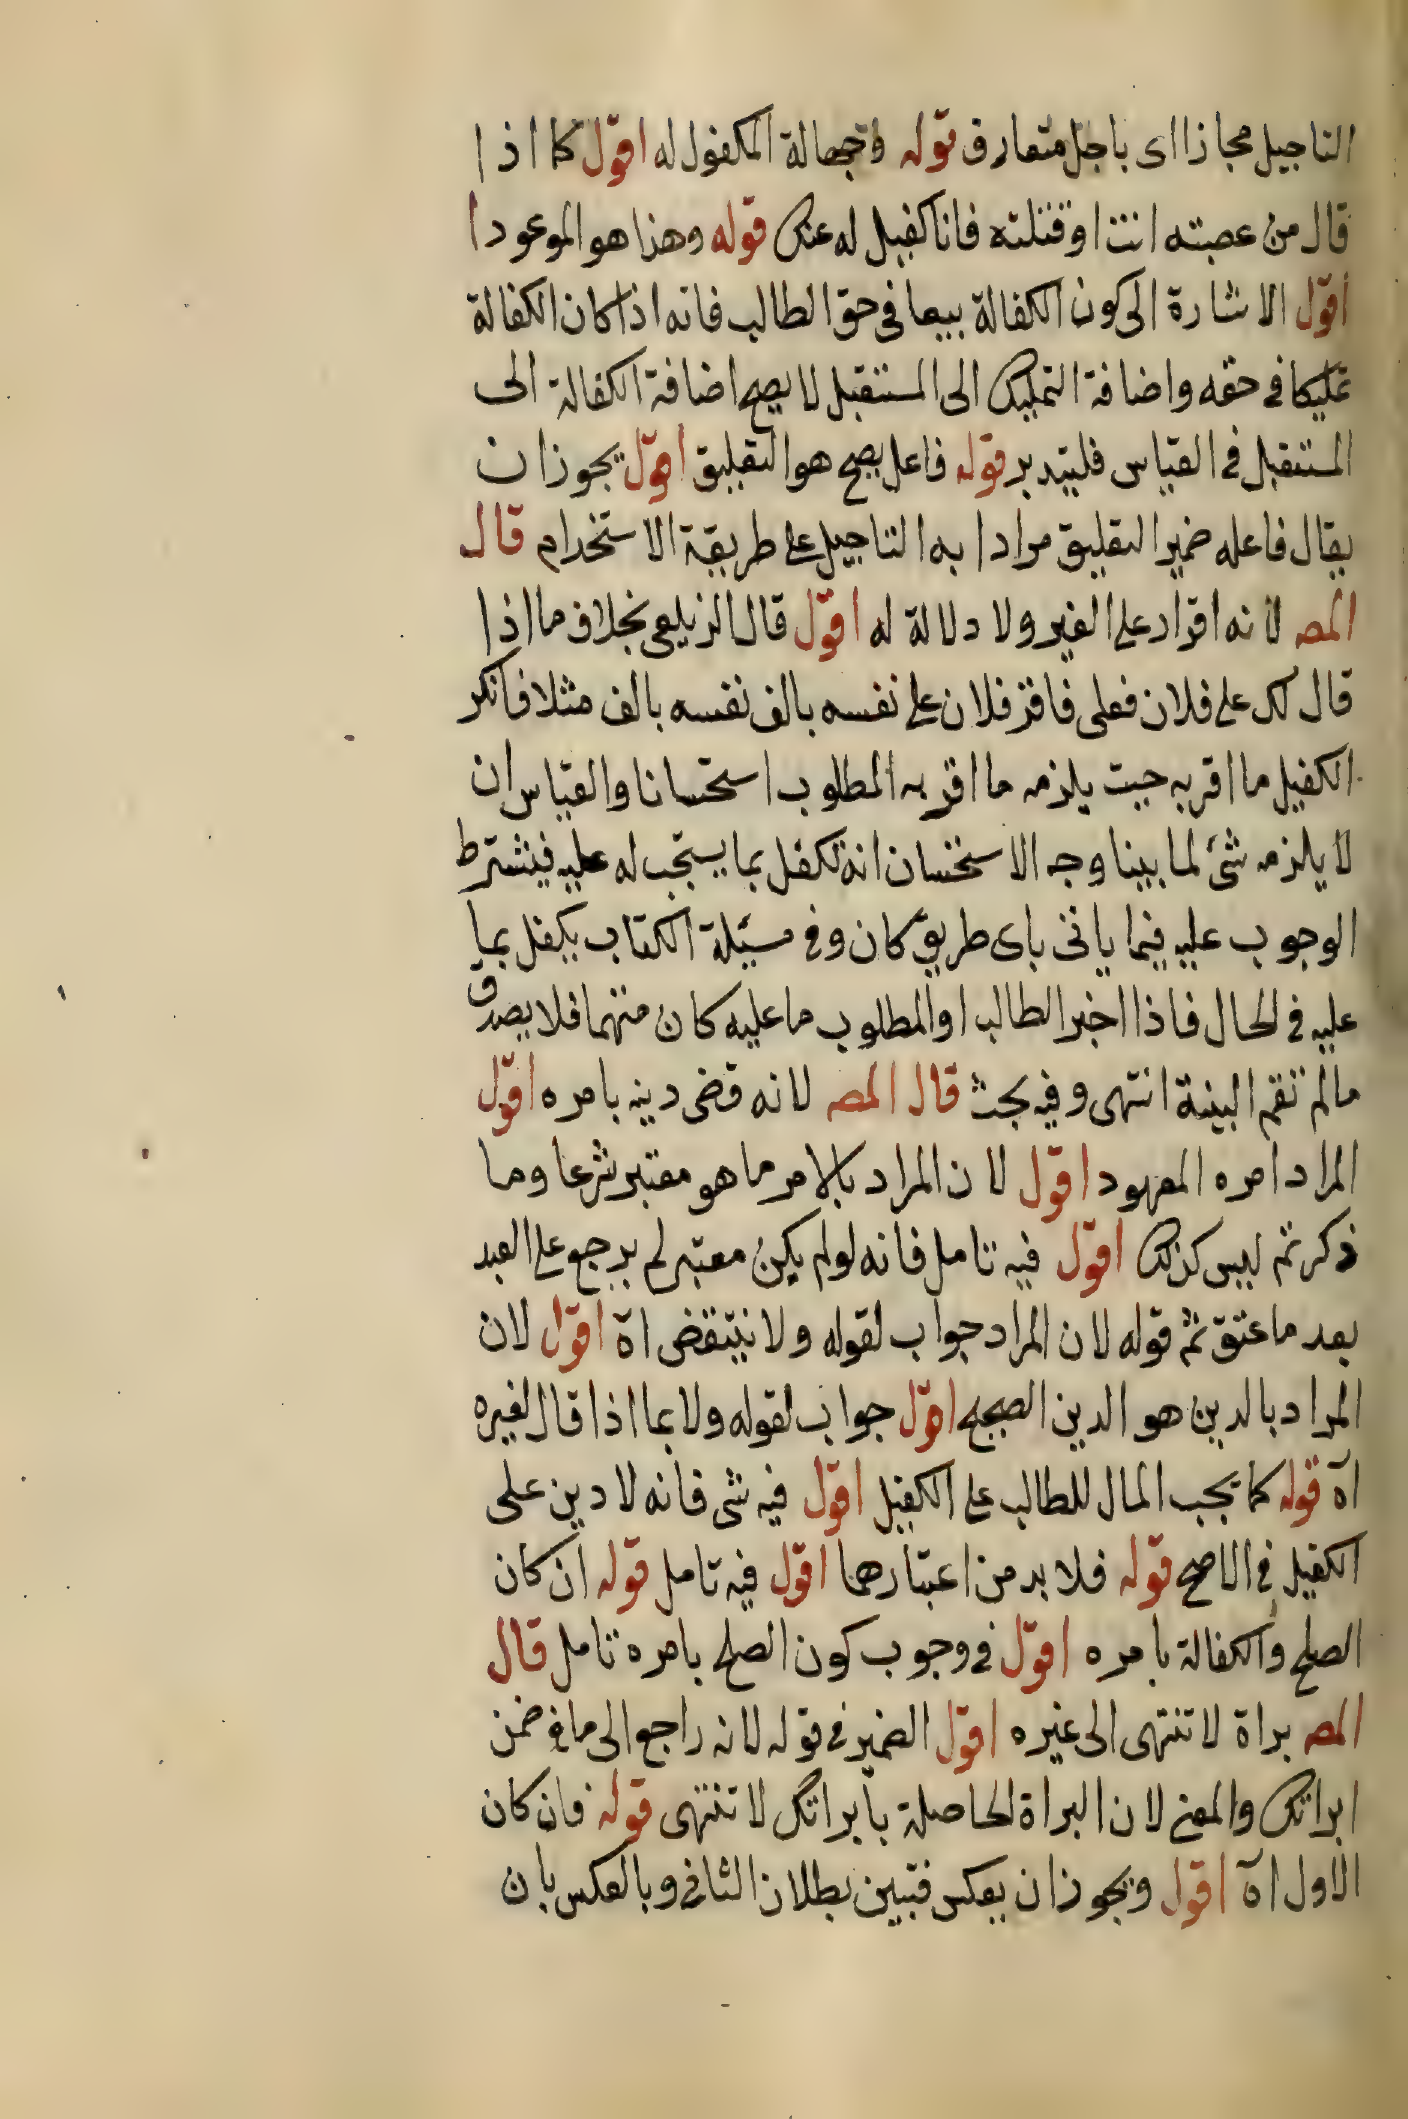 التاجيل مجازا اى باجل متعارف قوله وجهالة المكفول له اقول كما اذا
قال من غصبته انت او قتلته فانا كفيل له عنك قوله وهذا هو الموعود ا
اقول الاشارة الى كون الكفالة بيعا فى حق الطالب فانه اذا كان الكفالة
تمليكا فى حقه واضافة التمليك الى المستقبل لا يصح اضافة الكفالة الى
المستقبل فى القياس فليتدبر قوله فاعل يصح هو التعليق اقول يجوز ان
يقال فاعله ضمير التعليق مرادا به التاجيل على طريقة الاستخدام قال
المصـ لانه اقرار على الغير ولا دلالة له اقول قال الزيلعى بخلاف ما اذا
قال لك على فلان فعلى فاقر فلان على نفسه بالف نفسه بالف مثلا فانكر
الكفيل ما اقر به حيث يلزمه ما اقر به المطلوب استحسانا والقياس ان
لا يلزمه شئ لما بينا وجه الاستحسان انه تكفل بما يستجب له عليه فيشترط
الوجوب عليه فيما ياتى باى طريق كان وفى مسئلة الكتاب يكفل بما
عليه فى الحال فاذا اخبر الطالب او المطلوب ما عليه كان متهما فلا يصدق
مالم تقم البينة انتهى وفيه بحث قال المصـ لانه قضى دينه بامره اقول
المراد امره المعهود اقول لان المراد بالامر ما هو معتبر شرعا وما
ذكر ثم ليس كذلك اقول فيه تامل فانه لو لم يكن معتبر لم يرجع على العبد
بعد ما عتق ثم قوله لان المراد جواب لقوله ولا ينتقض اه اقول لان
المراد بالدين هو الدين الصحيح اقول جواب لقوله ولا بما اذا قال لغيره
اه قوله كما يجب المال للطالب على الكفيل اقول فيه شى فانه لا دين على
الكفيل فى الاصح قوله فلا بد من اعتبارهما اقول فيه تامل قوله ان كان
الصلح والكفالة بامره اقول فى وجوب كون الصلح بامره تامل قال
المصـ براة لا تنتهى الى غيره اقول الضمير فى قوله لانه راجع الى ما فى ضمن
ابراتك والمعنى لان البراة الحاصلة بابراتك لا تنتهى قوله فان كان
الاول اه اقول ويجوز ان يعكس فتبين بطلان الثانى وبالعكس بان